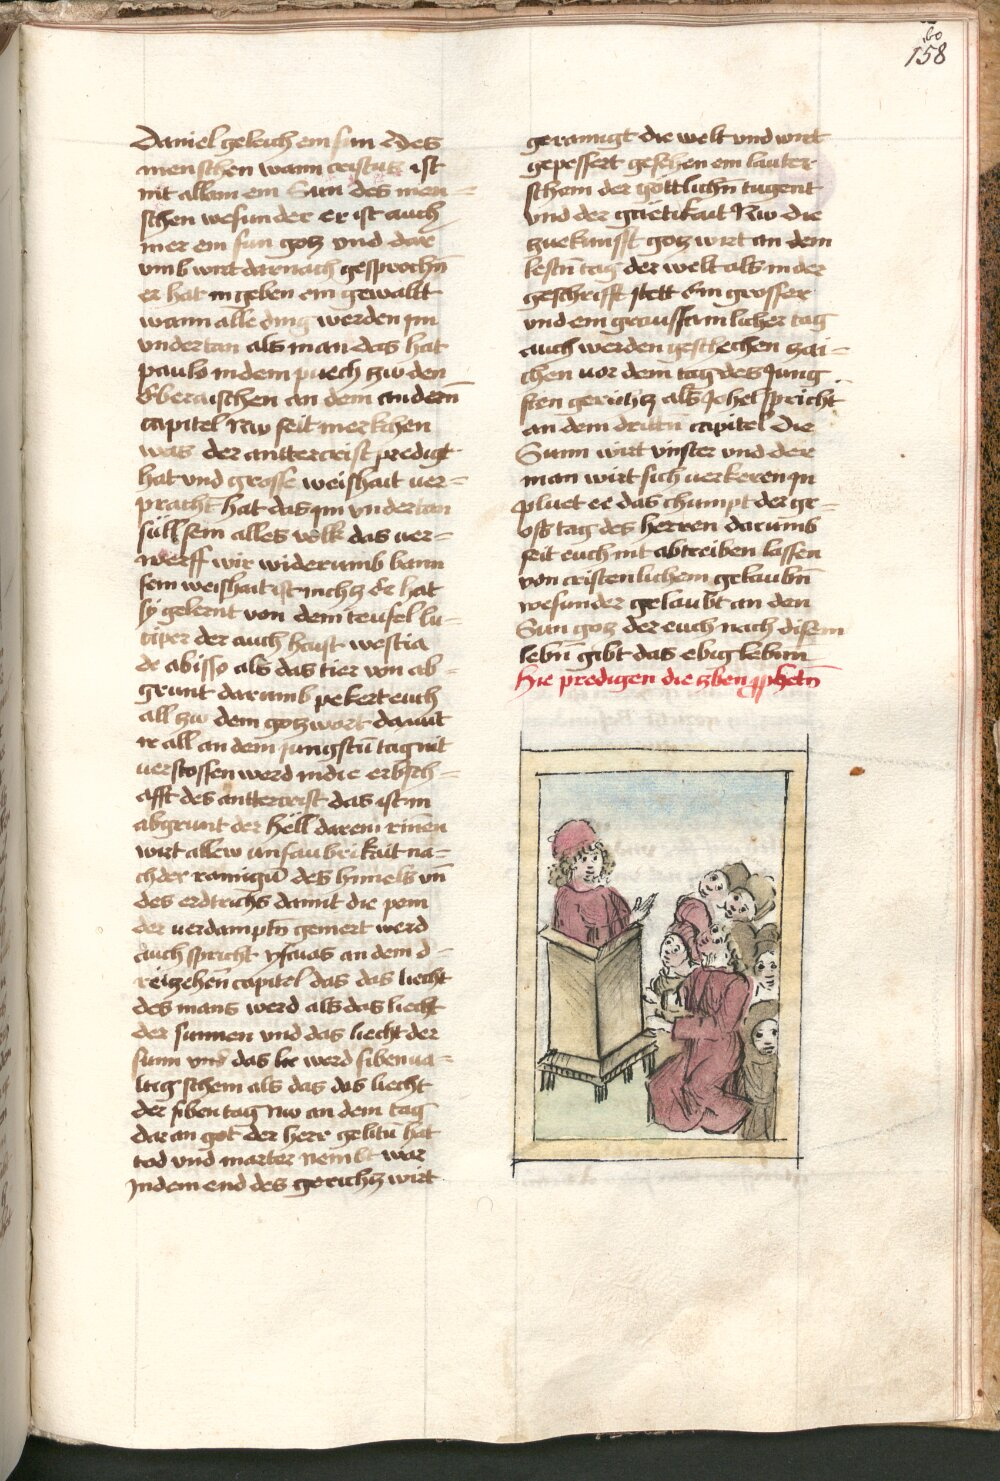 160
158
Daniel geleich em sun des
menschen wann cristus ist
nit allain ein Sun des men=
schen wesunder er ist auch
mer ein sun gotz vnd dar
vmb wirt darnach gesprochn̄
er hat in geben ein gewaltt
wann alle ding werden im
vndertan als man das hat
paulo in dem puech zw den
Ebraischen an dem andern̄
capitel Nw seit merkchen
was der anttercrist predigt
hat vnd grosse weishait ver=
pracht hat das im vndertan
süll sein alles volk das ver=
werff wir widerumb wann
sein weishait ist nichtz Er hat
sy gelernt von dem teufel lu=
ciper der auch haist westia
de abisso als das tier von ab=
grunt darumb pekert euch
all zw dem gotz wort damit
ir all an dem jungstn̄ tag nit
verstossen werd in die erbsch=
afft des anttercrist das ist in
abgrunt der Hell darein rinen
wirt allew unsaubrikait na=
ch der rainigū des himels vn̄
des erdtrichs damit die pein
der verdamptn̄ gemert werd
auch spricht ysaias an dem d=
reizehen̄ capitel das das liecht
des mans werd als das liecht
der sunnen vnd das liecht der
sunn vnd das lie werd sibenua=
ltig schein als das das liecht
der siben tag Nw an dem tag
dar an got der herr gelitn̄ hat
tod vnd marter Nembt war
In dem end des gerichtz wirt
gerainigt die welt vnd wirt
gepessert gesehen ein lauter
schein der göttlichn̄ tugent
vnd der güetikait Nw die
zuekunfft gotz wirt an dem
lestn̄ tag der welt als in der
geschrifft stett Ein grosser
vnd ein graussamlicher tag
auch werden geschechen zai=
chen vor dem tag des Jung
sten gerichtz als Johel spricht
an dem drittn̄ capitel Die
Sunn wirt vinster vnd der
man wirt sich verkeren in
pluet ee das chumpt der gr=
oss tag des herren darumb
seit euch nit abtreiben lassen
von cristenlichem gelaubn̄
wesunder gelaubt an den
Sun gotz der euch nach disem
lebn̄ gibt das ebig lebnn̄
Hie predigen die zben pphetn̄